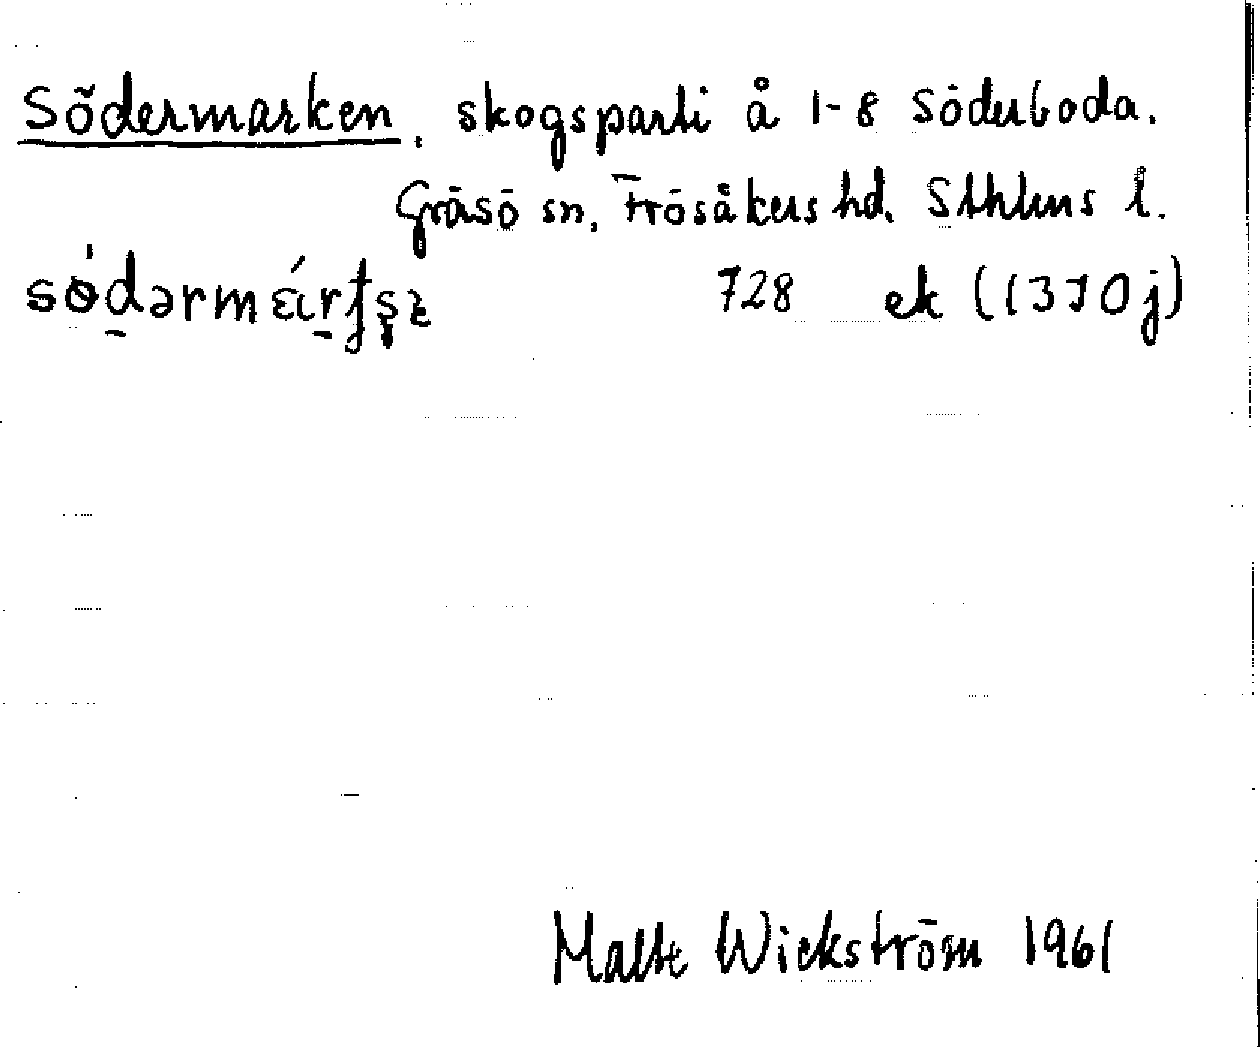 Södermarken, skogsparti å 1-8 Söderboda.
Gräsö sn, Frösåkers hd. Sthlms l.
728 ek (13J0j)
Malte Wickström 1961